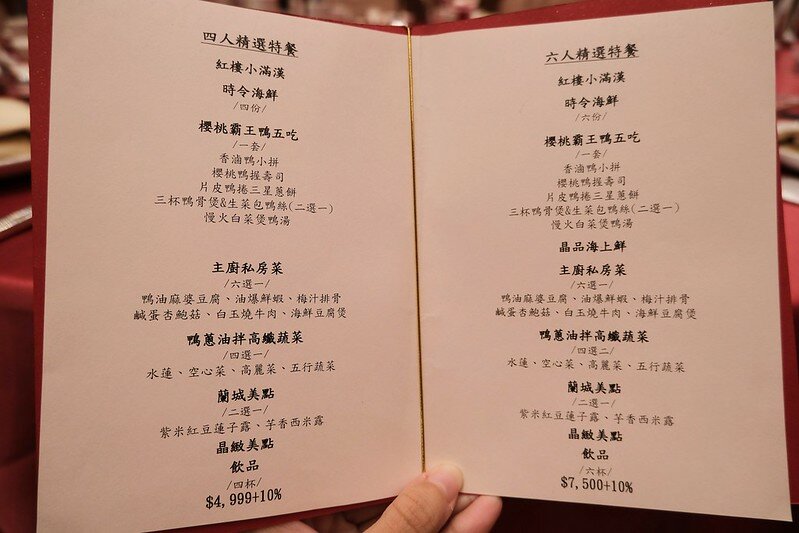 四人精選特餐
紅樓小滿漢
時令海鮮
/四份/
櫻桃霸王鴨五吃
/一套/
香滷鴨小拼
櫻桃鴨握壽司
片皮鴨捲三星蔥餅
三杯鴨骨煲&生菜包鴨絲(二選一)
慢火白菜煲鴨湯
主廚私房菜
/六選一/
鴨油麻婆豆腐、油爆鮮蝦、梅汁排骨
鹹蛋杏鮑菇、白玉燒牛肉、海鮮豆腐煲
鴨蔥油拌高纖蔬菜
/四選一/
水蓮、空心菜、高麗菜、五行蔬菜
蘭城美點
/二選一/
紫米紅豆蓮子露、芋香西米露
晶緻美點
飲品
/四杯/
$4,999+10%
六人精選特餐
紅樓小滿漢
時令海鮮
/六份/
櫻桃霸王鴨五吃
/一套/
香滷鴨小拼
櫻桃鴨握壽司
片皮鴨捲三星蔥餅
三杯鴨骨煲&生菜包鴨絲(二選一)
慢火白菜煲鴨湯
晶品海上鮮
主廚私房菜
/六選一/
鴨油麻婆豆腐、油爆鮮蝦、梅汁排骨
鹹蛋杏鮑菇、白玉燒牛肉、海鮮豆腐煲
鴨蔥油拌高纖蔬菜
/四選二/
水蓮、空心菜、高麗菜、五行蔬菜
蘭城美點
/二選一/
紫米紅豆蓮子露、芋香西米露
晶緻美點
飲品
/六杯/
$7,500+10%